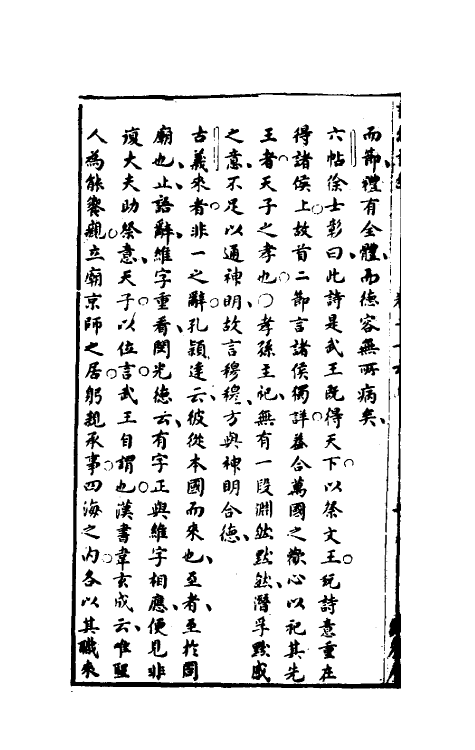 而節禮有全體而德容無所病矣
六帖徐士彰曰此詩是武王既得天下以祭文王玩詩意重在
得諸侯上故首二節言諸侯獨詳蓋合萬國之歡心以祀其先
王者天子之孝也○孝孫王祀無有一段淵然默然潛孚默感
之意不足以通神明故言穆穆方與神明合德
古義來者非一之辭孔穎達云彼從本國而來也至者至於周
廟也止語辭維字重看閔光德云有字正與維字相應便見非
復大夫助祭意天子以位言武王自謂也漢書韋玄成云惟聖
人為能饗親立廟京師之居躬親承事四海之內各以其職來